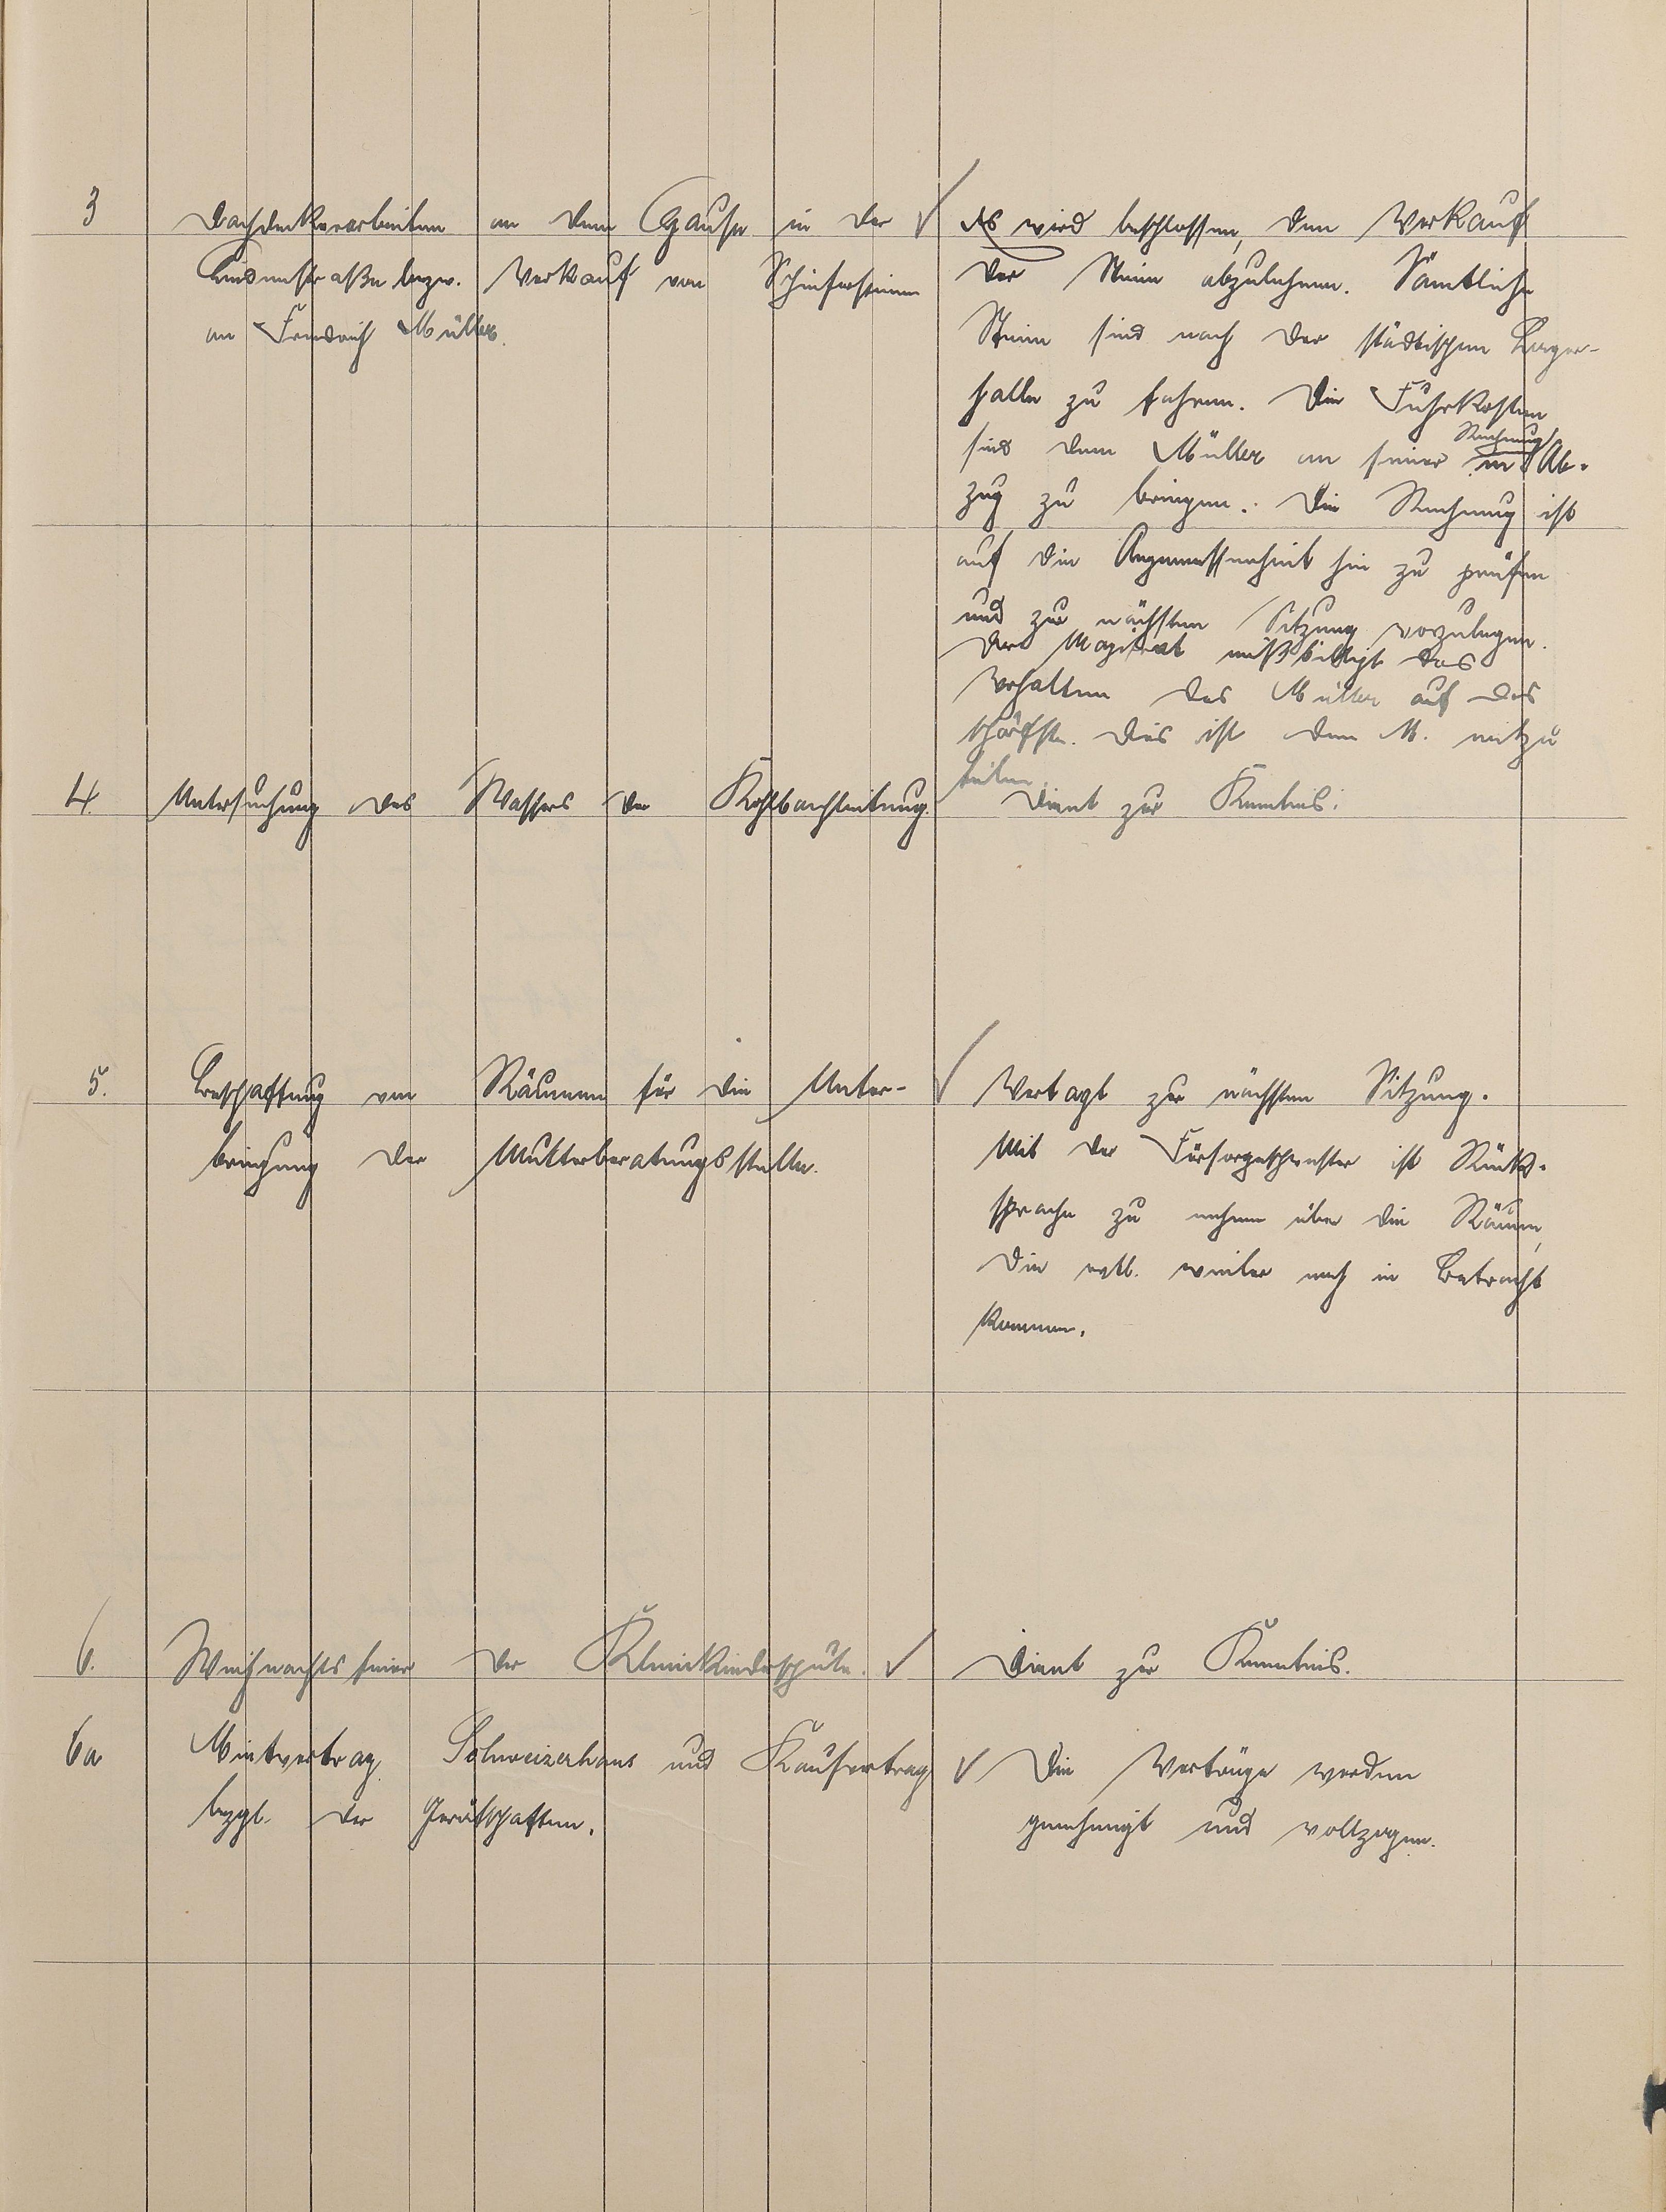 3
Dachdeckerarbeiten an dem Hause in der
Lindenstraße bezw. Verkauf von Schiefersteinen
an Friedrich Müller.
Es wird beschlossen, den Verkauf
der Steine abzulehnen. Sämtliche
Steine sind nach der städtischen Lager-
halle zu fahren. Die Fuhrkosten
sind dem Müller an seiner Rechnung in Ab-
zug zu bringen. Die Rechnung ist
auf die Angemessenheit hin zu prüfen
und zur nächsten Sitzung vorzulegen.
Der Magistrat mißbilligt das
Verhalten des Müller auf das
schärfste. Dies ist dem M. mitzu
teilen.
4. Untersuchung des Wassers der Kohlbachleitung.
Dient zur Kenntnis.
5. Beschaffung von Räumen für die Unter-
bringung der Mutterberatungsstelle.
Vertagt zur nächsten Sitzung.
Mit der Fürsorgeschwester ist Rück-
sprache zu nehmen über die Räume,
die evtl. weiter noch in Betracht
kommen.
6. Weihnachtsfeier der Kleinkinderschule.
Dient zur Kenntnis.
6a Mietvertrag Schweizerhaus und Kaufvertrag
bezgl. der Gerätschaften.
Die Verträge werden
genehmigt und vollzogen.